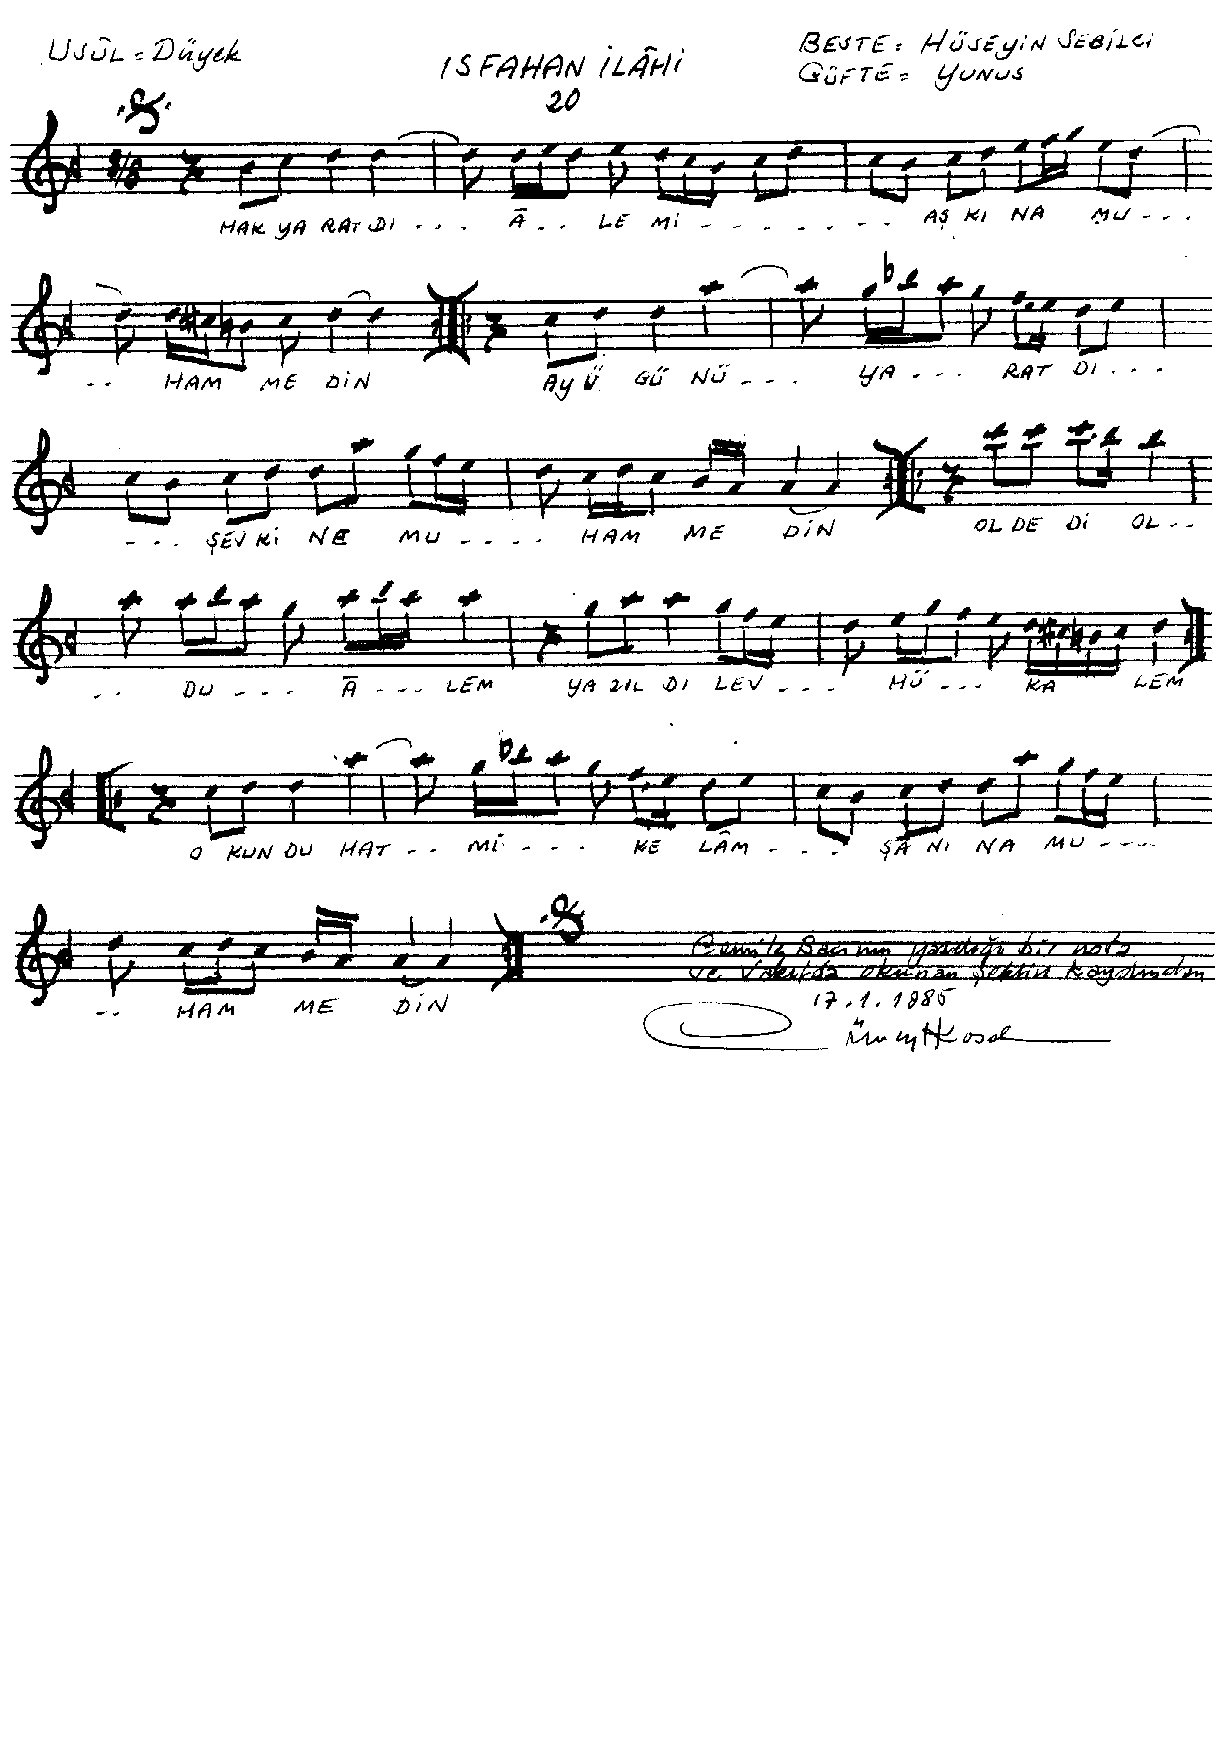 USÛL = Düyek
ISFAHAN İLÂHİ
20
BESTE = HÜSEYİN SEBİLCİ
GÜFTE = YUNUS
HAK YA RAT DI . . . . Ā . . . LE Mİ . . . . . . . . AŞ KI NA MU . . . .
. . . HAM ME DİN AY Ü GÜ NÜ . . . . YA . . . . RAT DI . . . .
. . . . ŞEV Kİ NE MU . . . . . HAM ME DİN OL DE Dİ OL . . .
. . DU . . . . Ā . . . . LEM YA ZIL DI LEV . . . . HÜ . . . . KA LEM
O KUN DU HAT . . . Mİ . . . . KE LÂM . . . . ŞA NI NA MU . . . .
. . . HAM ME DİN
yazdığı bir nota
ve okunan
17.1.1985